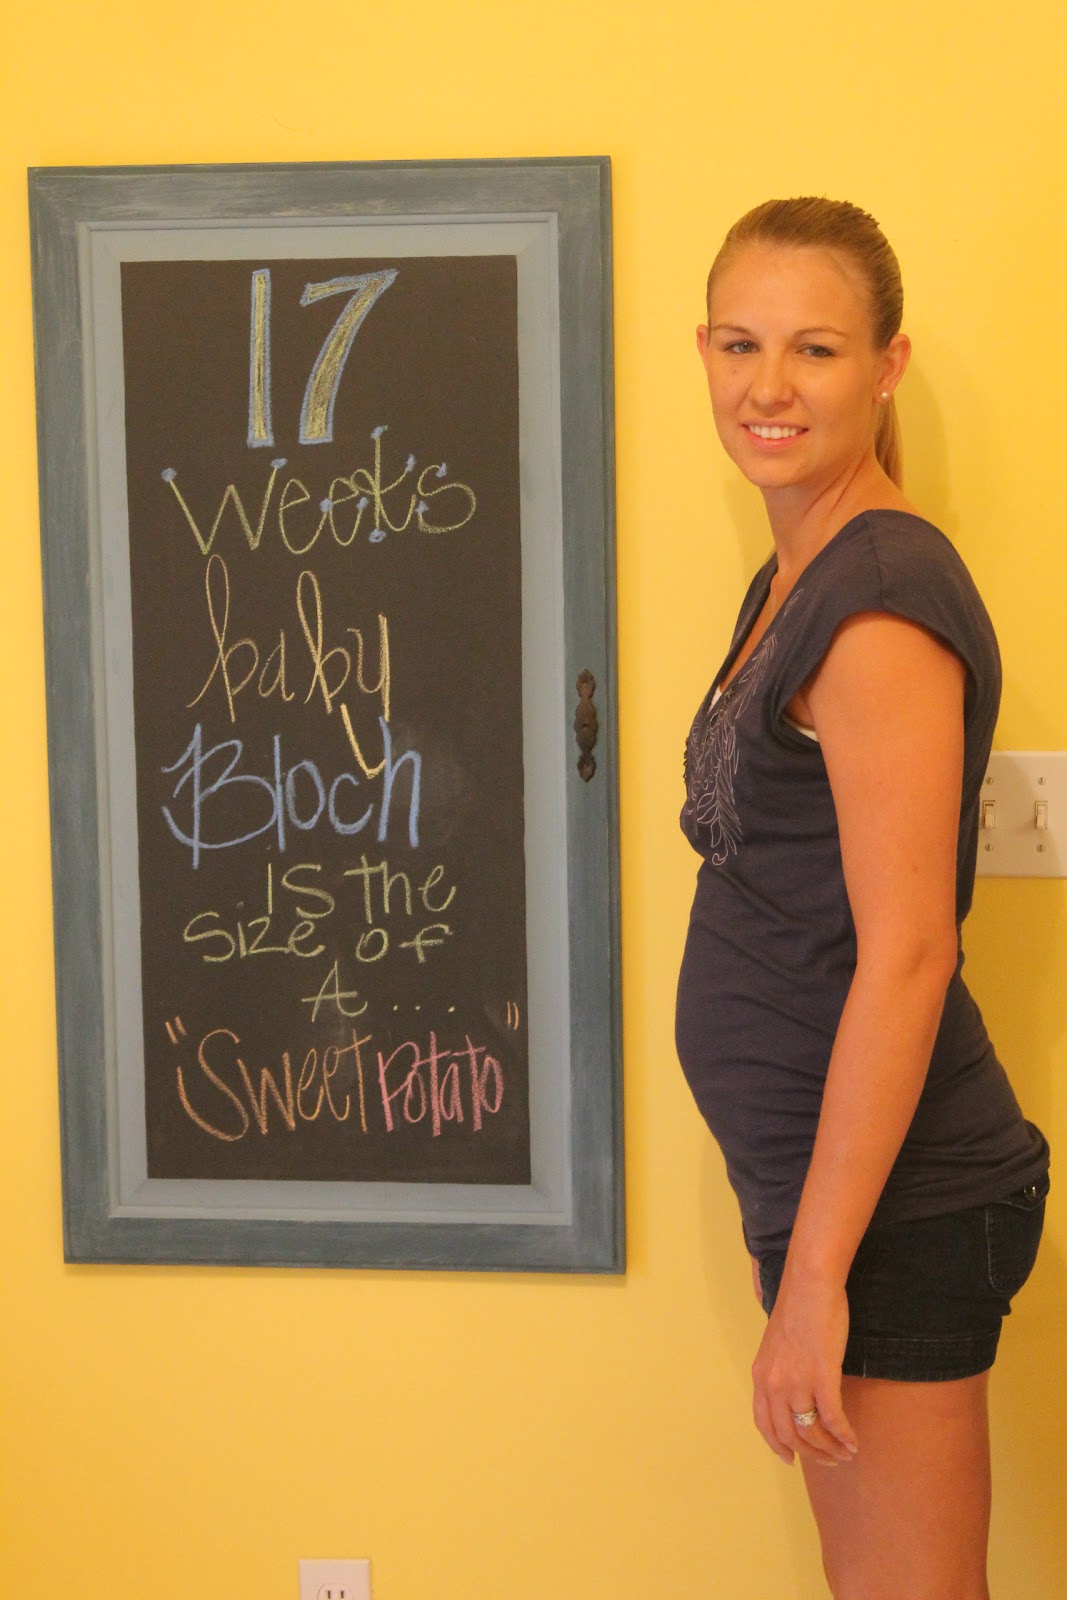 17
weeks
baby
Bloch
is the
size of
A ....
"Sweet Potato"